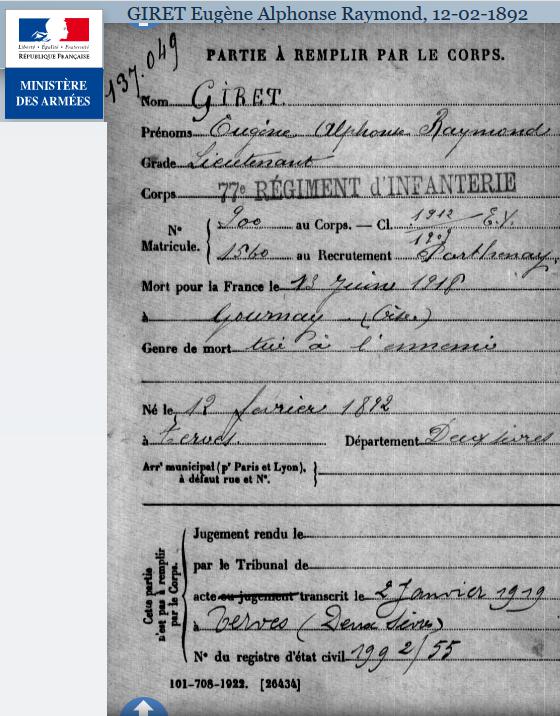 GIRET Eugène Alphonse Raymond, 12-02-1892
Liberté • Égalité • Fraternité
RÉPUBLIQUE FRANÇAISE
MINISTÈRE
DES ARMÉES
137.049
PARTIE À REMPLIR PAR LE CORPS.
Nom GIRET.
Prénoms Eugène Alphonse Raymond
Grade Lieutenant
Corps 77e RÉGIMENT d'INFANTERIE
N° Matricule. 900 au Corps. — Cl. 1912 E.V.
1909
1560 au Recrutement Parthenay
Mort pour la France le 13 Juin 1918
à Gournay (Oise)
Genre de mort tué à l'ennemi
Né le 12 février 1892
à Terves Département Deux Sèvres
Arr' municipal (p' Paris et Lyon),
à défaut rue et N°.
Cette partie
n'est pas à remplir
par le Corps.
Jugement rendu le
par le Tribunal de
acte ou jugement transcrit le 2 Janvier 1919
à Terves (Deux Sèvres)
N° du registre d'état civil 199 2/55
101-708-1922. [26434]